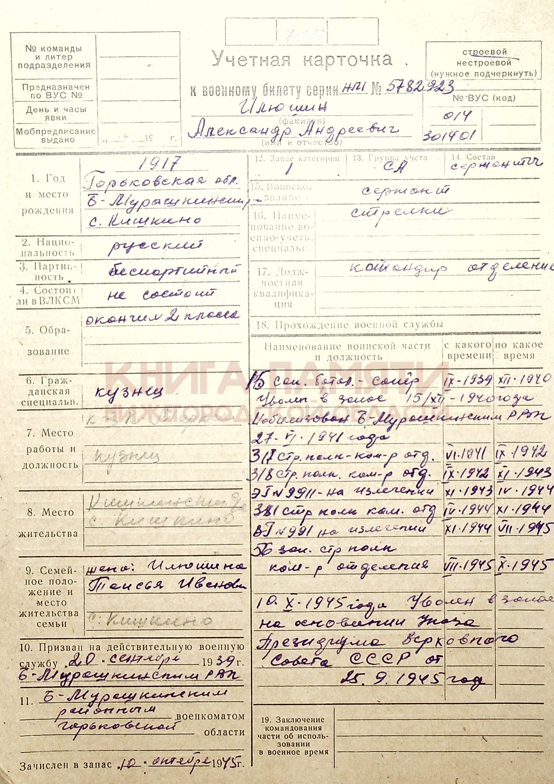 № команды
и литер
подразделения
Предназначен
по ВУС №
День и часы
явки
Мобпредписание
выдано
г.
Учетная карточка
к военному билету серии НЛ № 5782923
Илюшин
(фамилия)
Александр Андреевич
(имя и отчество)
строевой
нестроевой
(нужное подчеркнуть)
№ ВУС (код)
014
301401
1. Год
и место
рождения
1917
Горьковская обл.
Б-Мурашкинский
с. Кишкино
2. Нацио-
нальность
русский
3. Партий-
ность
беспартийный
4. Состои
ли в ВЛКСМ
не состоит
5. Обра-
зование
окончил 2 класса
6. Граж-
данская
специальн.
кузнец
7. Место
работы и
должность
кузнец
8. Место
жительства
с. Кишкино
9. Семей-
ное поло-
жение и
место
жительства
семьи
жена: Илюшина
Таисья Иванов
с. Кишкино
10. Призван на действительную военную
службу 20 сентября 1939 г.
Б-Мурашкинским РВК
11. Б-Мурашкинским
районным
военкоматом
Горьковской области
Зачислен в запас 10 октября 1945 г.
12. Запас категории
1
13. Группа учета
СА
14. Состав
сержанты
15. Воинско.
звание
сержант
16. Наиме-
нование во-
енно-учетн.
специальн.
стрелки
17. Долж-
ностная
квалифика-
ция
командир отделения
18. Прохождение военной службы
Наименование воинской части
и должность
с какого
времени
по какое
время
15 сап. батал.-сапёр IX-1939 XII-1940
Уволен в запас 15/XII-1940 года
Мобилизован Б-Мурашкинским РВК
27-VI-1941 года
317 стр. полк-ком-р отд. VI-1941 IX-1942
318 стр. полк. ком-р отд. IX-1942 XI-1943
ЭГ № 9911-на излечении XI-1943 IV-1944
381 стр полк ком. отд IV-1944 XI-1944
ЭГ № 991 на излечении XI-1944 VII-1945
56 зап. стр полк
ком-р отделения VII-1945 X-1945
10. X-1945 года Уволен в запас
на основании Указа
Президиума Верховного
Совета СССР от
25. 9. 1945 год
19. Заключение
командования
части об исполь-
зовании
в военное время
КНИГА ПАМЯТИ
НИЖЕГОРОДСКОЙ ОБЛАСТИ